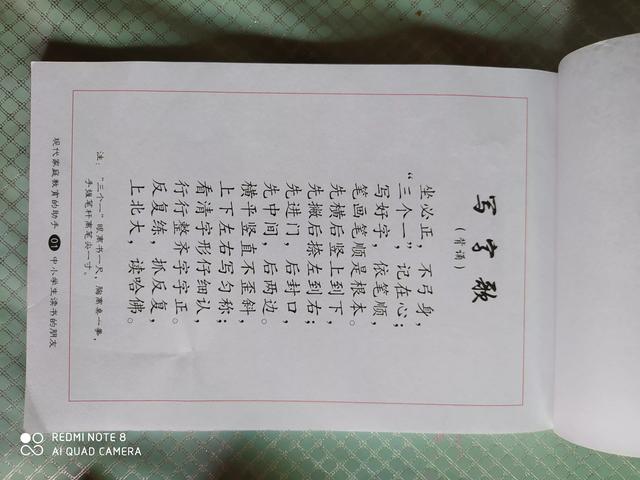 写字歌
（背诵）
坐必正，不弓身，
“三个一”，记在心；
写好字，依笔顺，
笔画笔顺是根本。
先横后竖上到下，
先撇后捺左到右；
先进门，后封口，
先中间，后两边。
横平竖直不歪斜，
上下左右写匀称；
看清字形仔细认，
行行整齐字字正。
反复练，抓反复，
上北大，读哈佛。
注：“三个一”眼离书一尺，胸离桌一拳，
手握笔杆离笔尖一寸。
现代家庭教育的助手 01 中小学生读书的朋友
REDMI NOTE 8
AI QUAD CAMERA